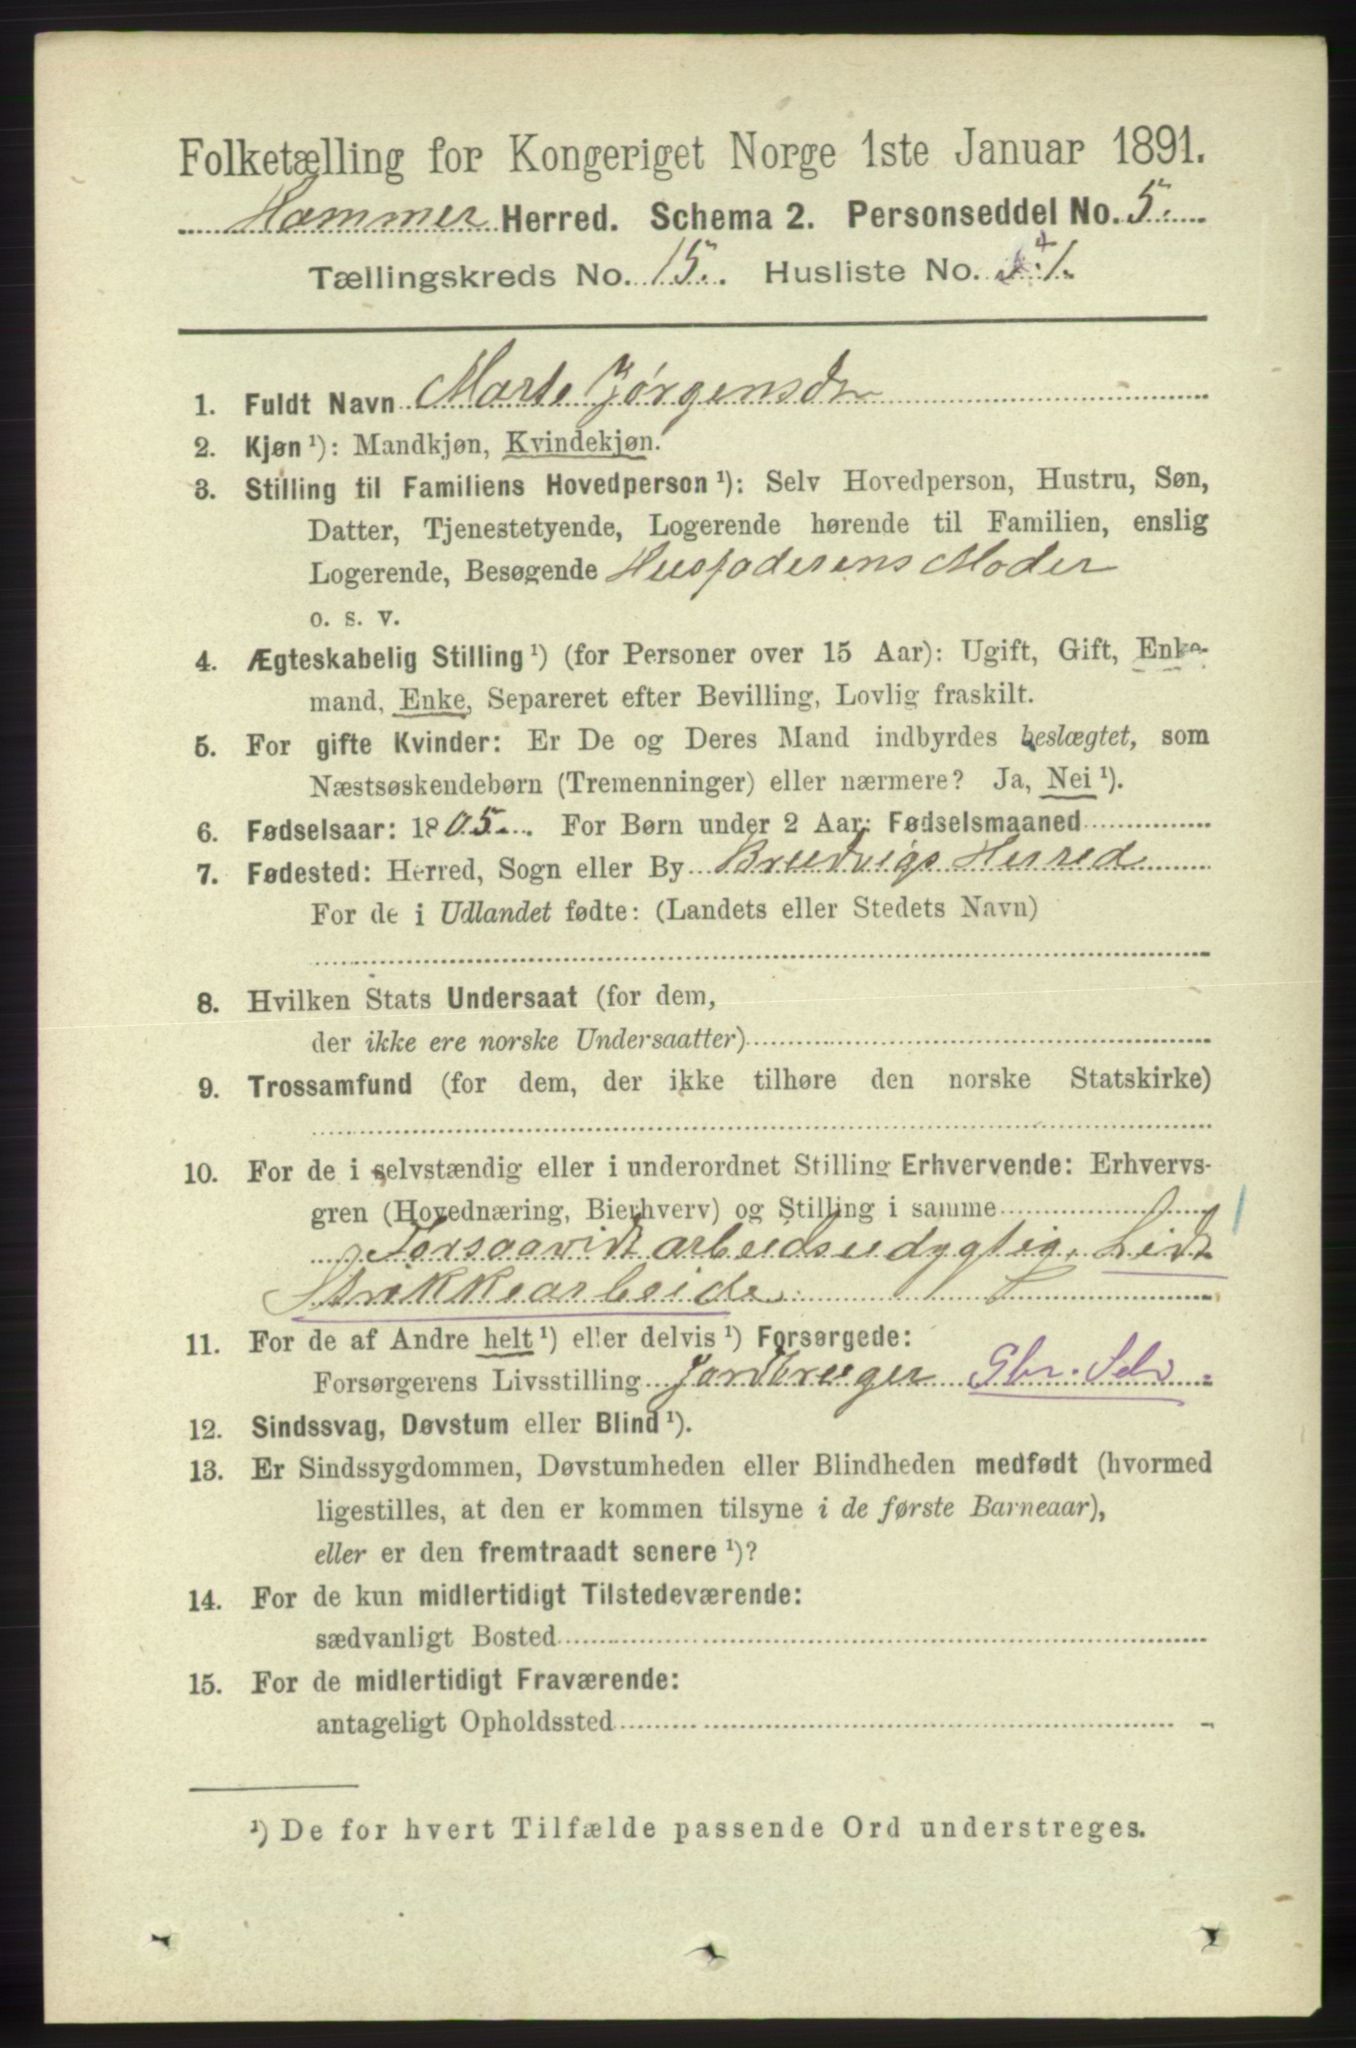 Folketælling for Kongeriget Norge 1ste Januar 1891.
Hammer Herred. Schema 2. Personseddel No. 5.
Tællingskreds No. 15. Husliste No. 41.
1. Fuldt Navn Marte Jørgensdr
2. Kjøn ¹): Mandkjøn, Kvindekjøn.
3. Stilling til Familiens Hovedperson ¹): Selv Hovedperson, Hustru, Søn,
Datter, Tjenestetyende, Logerende hørende til Familien, enslig
Logerende, Besøgende Husfaderens Moder
o. s. v.
4. Ægteskabelig Stilling ¹) (for Personer over 15 Aar): Ugift, Gift, Enke-
mand, Enke, Separeret efter Bevilling, Lovlig fraskilt.
5. For gifte Kvinder: Er De og Deres Mand indbyrdes beslægtet, som
Næstsøskendebørn (Tremenninger) eller nærmere? Ja, Nei ¹).
6. Fødselsaar: 1805. For Børn under 2 Aar: Fødselsmaaned
7. Fødested: Herred, Sogn eller By Bruvigs Herred
For de i Udlandet fødte: (Landets eller Stedets Navn)
8. Hvilken Stats Undersaat (for dem,
der ikke ere norske Undersaatter)
9. Trossamfund (for dem, der ikke tilhøre den norske Statskirke)
10. For de i selvstændig eller i underordnet Stilling Erhvervende: Erhvervs-
gren (Hovednæring, Bierhverv) og Stilling i samme
Forsaavidt arbeidsudygtig. Lidt
Strikkearbeide
11. For de af Andre helt ¹) eller delvis ¹) Forsørgede:
Forsørgerens Livsstilling Jordbruger Gbr. Selv
12. Sindssvag, Døvstum eller Blind ¹).
13. Er Sindssygdommen, Døvstumheden eller Blindheden medfødt (hvormed
ligestilles, at den er kommen tilsyne i de første Barneaar),
eller er den fremtraadt senere ¹)?
14. For de kun midlertidigt Tilstedeværende:
sædvanligt Bosted
15. For de midlertidigt Fraværende:
antageligt Opholdssted
¹) De for hvert Tilfælde passende Ord understreges.